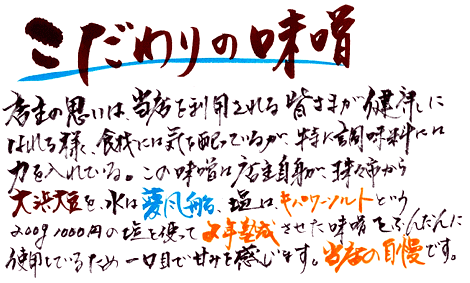 こだわりの味噌
店主の思いは、当店を利用される皆さまが健康に
なれる様、食材には気を配っているが、特に調味料には
力を入れている。この味噌は店主自身が、珠々市から
大浜大豆を、水は夢風船、塩は、キパワーソルトという
200g 1000円の塩を使って2年熟成させた味噌をふんだんに
使用しているため一口目で甘みを感じます。当店の自慢です。